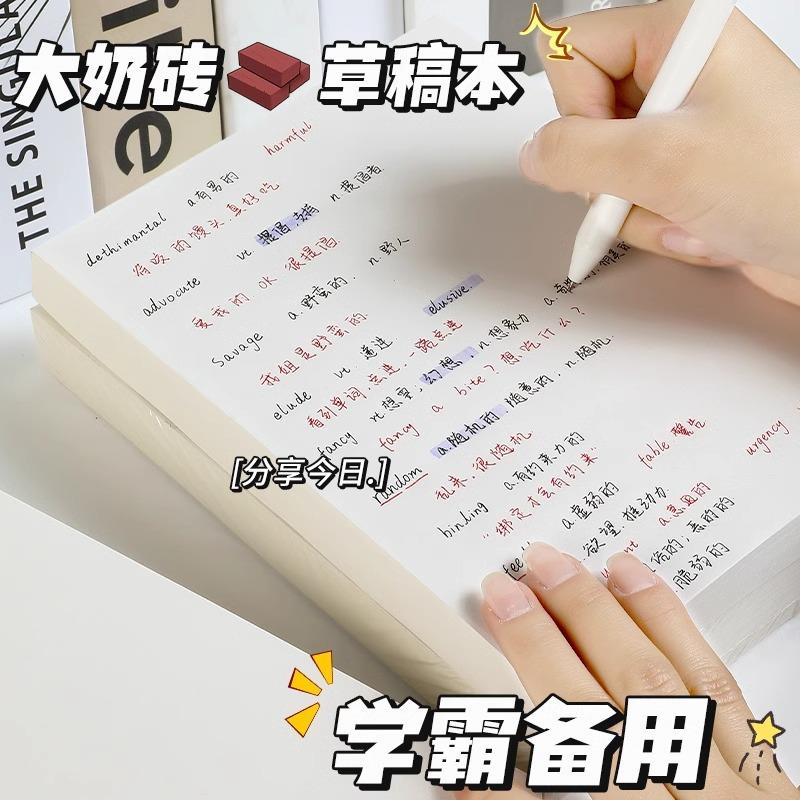 大奶砖 草稿本
THE SINGULA
ike
harmful
dethimantal a.有男的
有吸的馒头真好吃
advocute vt.提倡,支持 n.提倡者
爱我的OK很提倡
Savage a.野蛮的. n.野人
我姐是野蛮的. elusive.
elude vt.逃进
看到单词.忘进一路忘进
fancy vt.想要;幻想,n.想象力
fancy a bite?想吃什么?
random a.随机的.随意的.n.随机.
乱来.很随机
binding a.有约束力的 fable.警告 urgency
"绑定才会有约束"
a.虚弱的
欲望.推动力
脆弱的
[分享今日.]
学霸备用